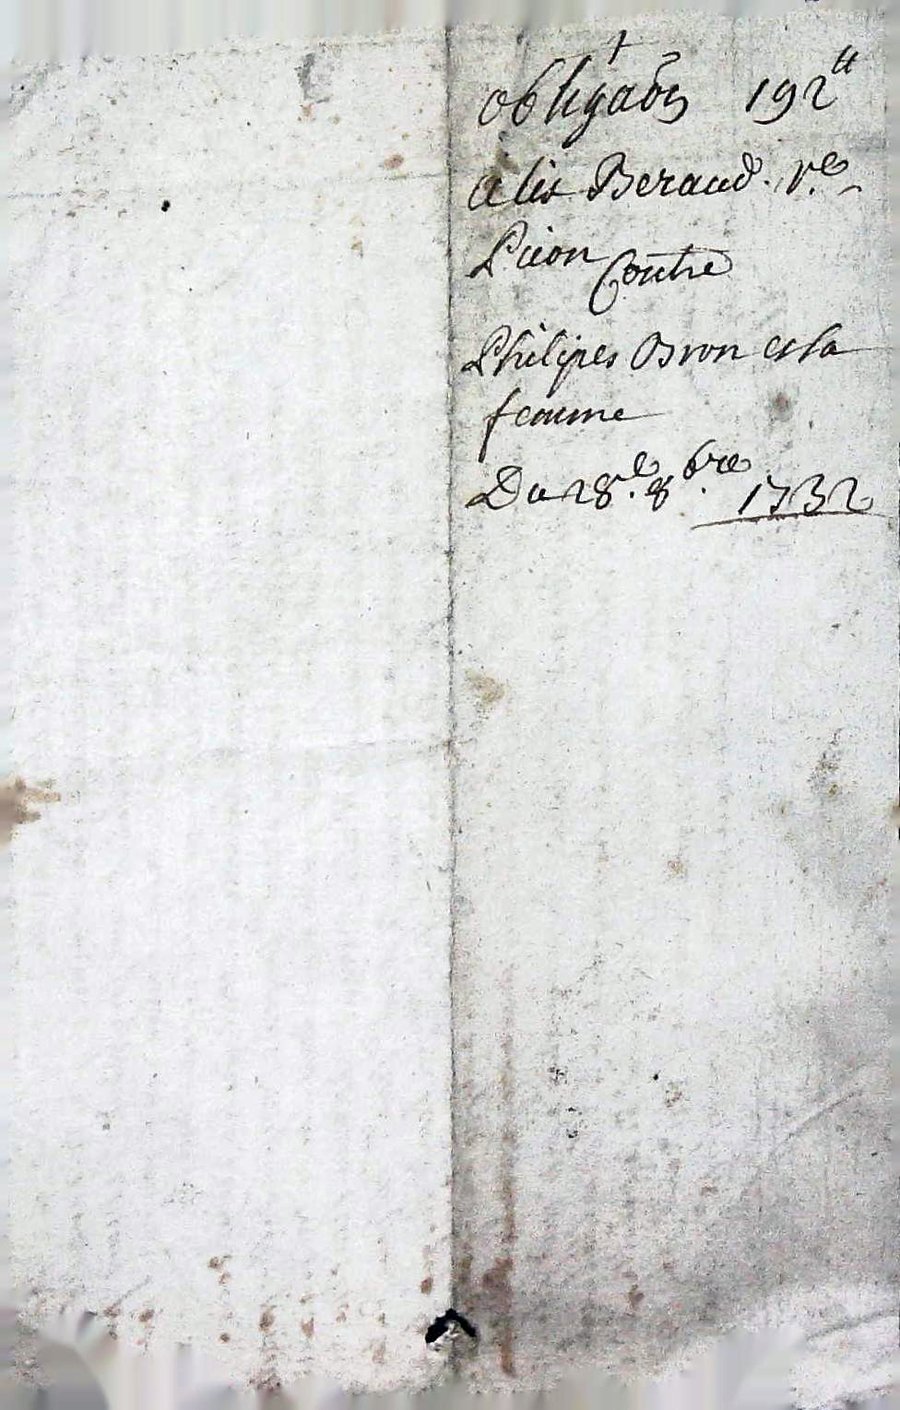 +
obligaõn 192tt
alix Beraud. ve
Picon
Contre
Philipes Bron et sa
femme
Du 28e. 8bre 1732